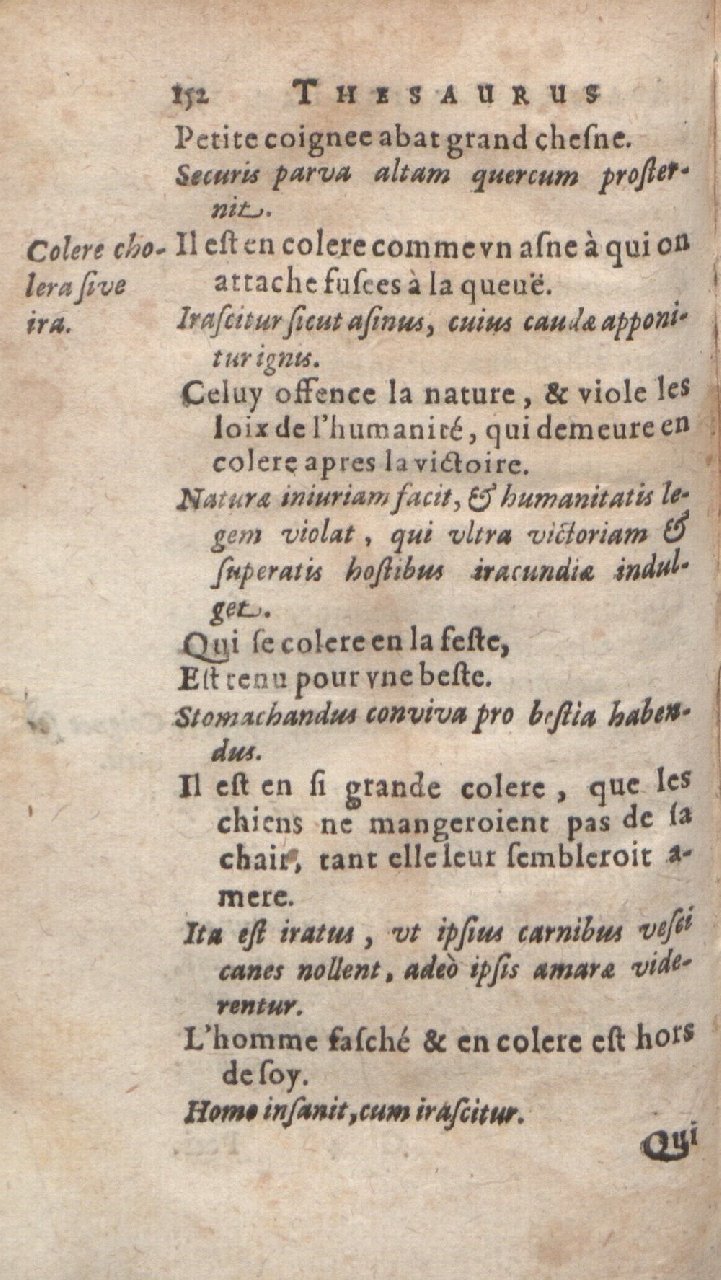 152 THESAURUS
Petite coignee abat grand chesne.
Securis parva altam quercum proster-
nit.
Colere cho-
lera ſive
ira.
Il eſt en colere comme vn aſne à qui on
attache fuſees à la queuë.
Iraſcitur ſicut aſinus, cuius caudæ apponi-
tur ignis.
Celuy offence la nature, & viole les
loix de l'humanité, qui demeure en
colere apres la victoire.
Naturæ iniuriam facit, & humanitatis le-
gem violat, qui vltra victoriam &
ſuperatis hoſtibus iracundiæ indul-
get.
Qui ſe colere en la feſte,
Eſt tenu pour vne beſte.
Stomachandus conviva pro beſtia haben-
dus.
Il eſt en ſi grande colere, que les
chiens ne mangeroient pas de ſa
chair, tant elle leur ſembleroit a-
mere.
Ita eſt iratus, vt ipſius carnibus veſci
canes nollent, adeò ipſis amaræ vide-
rentur.
L'homme faſché & en colere eſt hors
de ſoy.
Homo inſanit, cum iraſcitur.
Qui